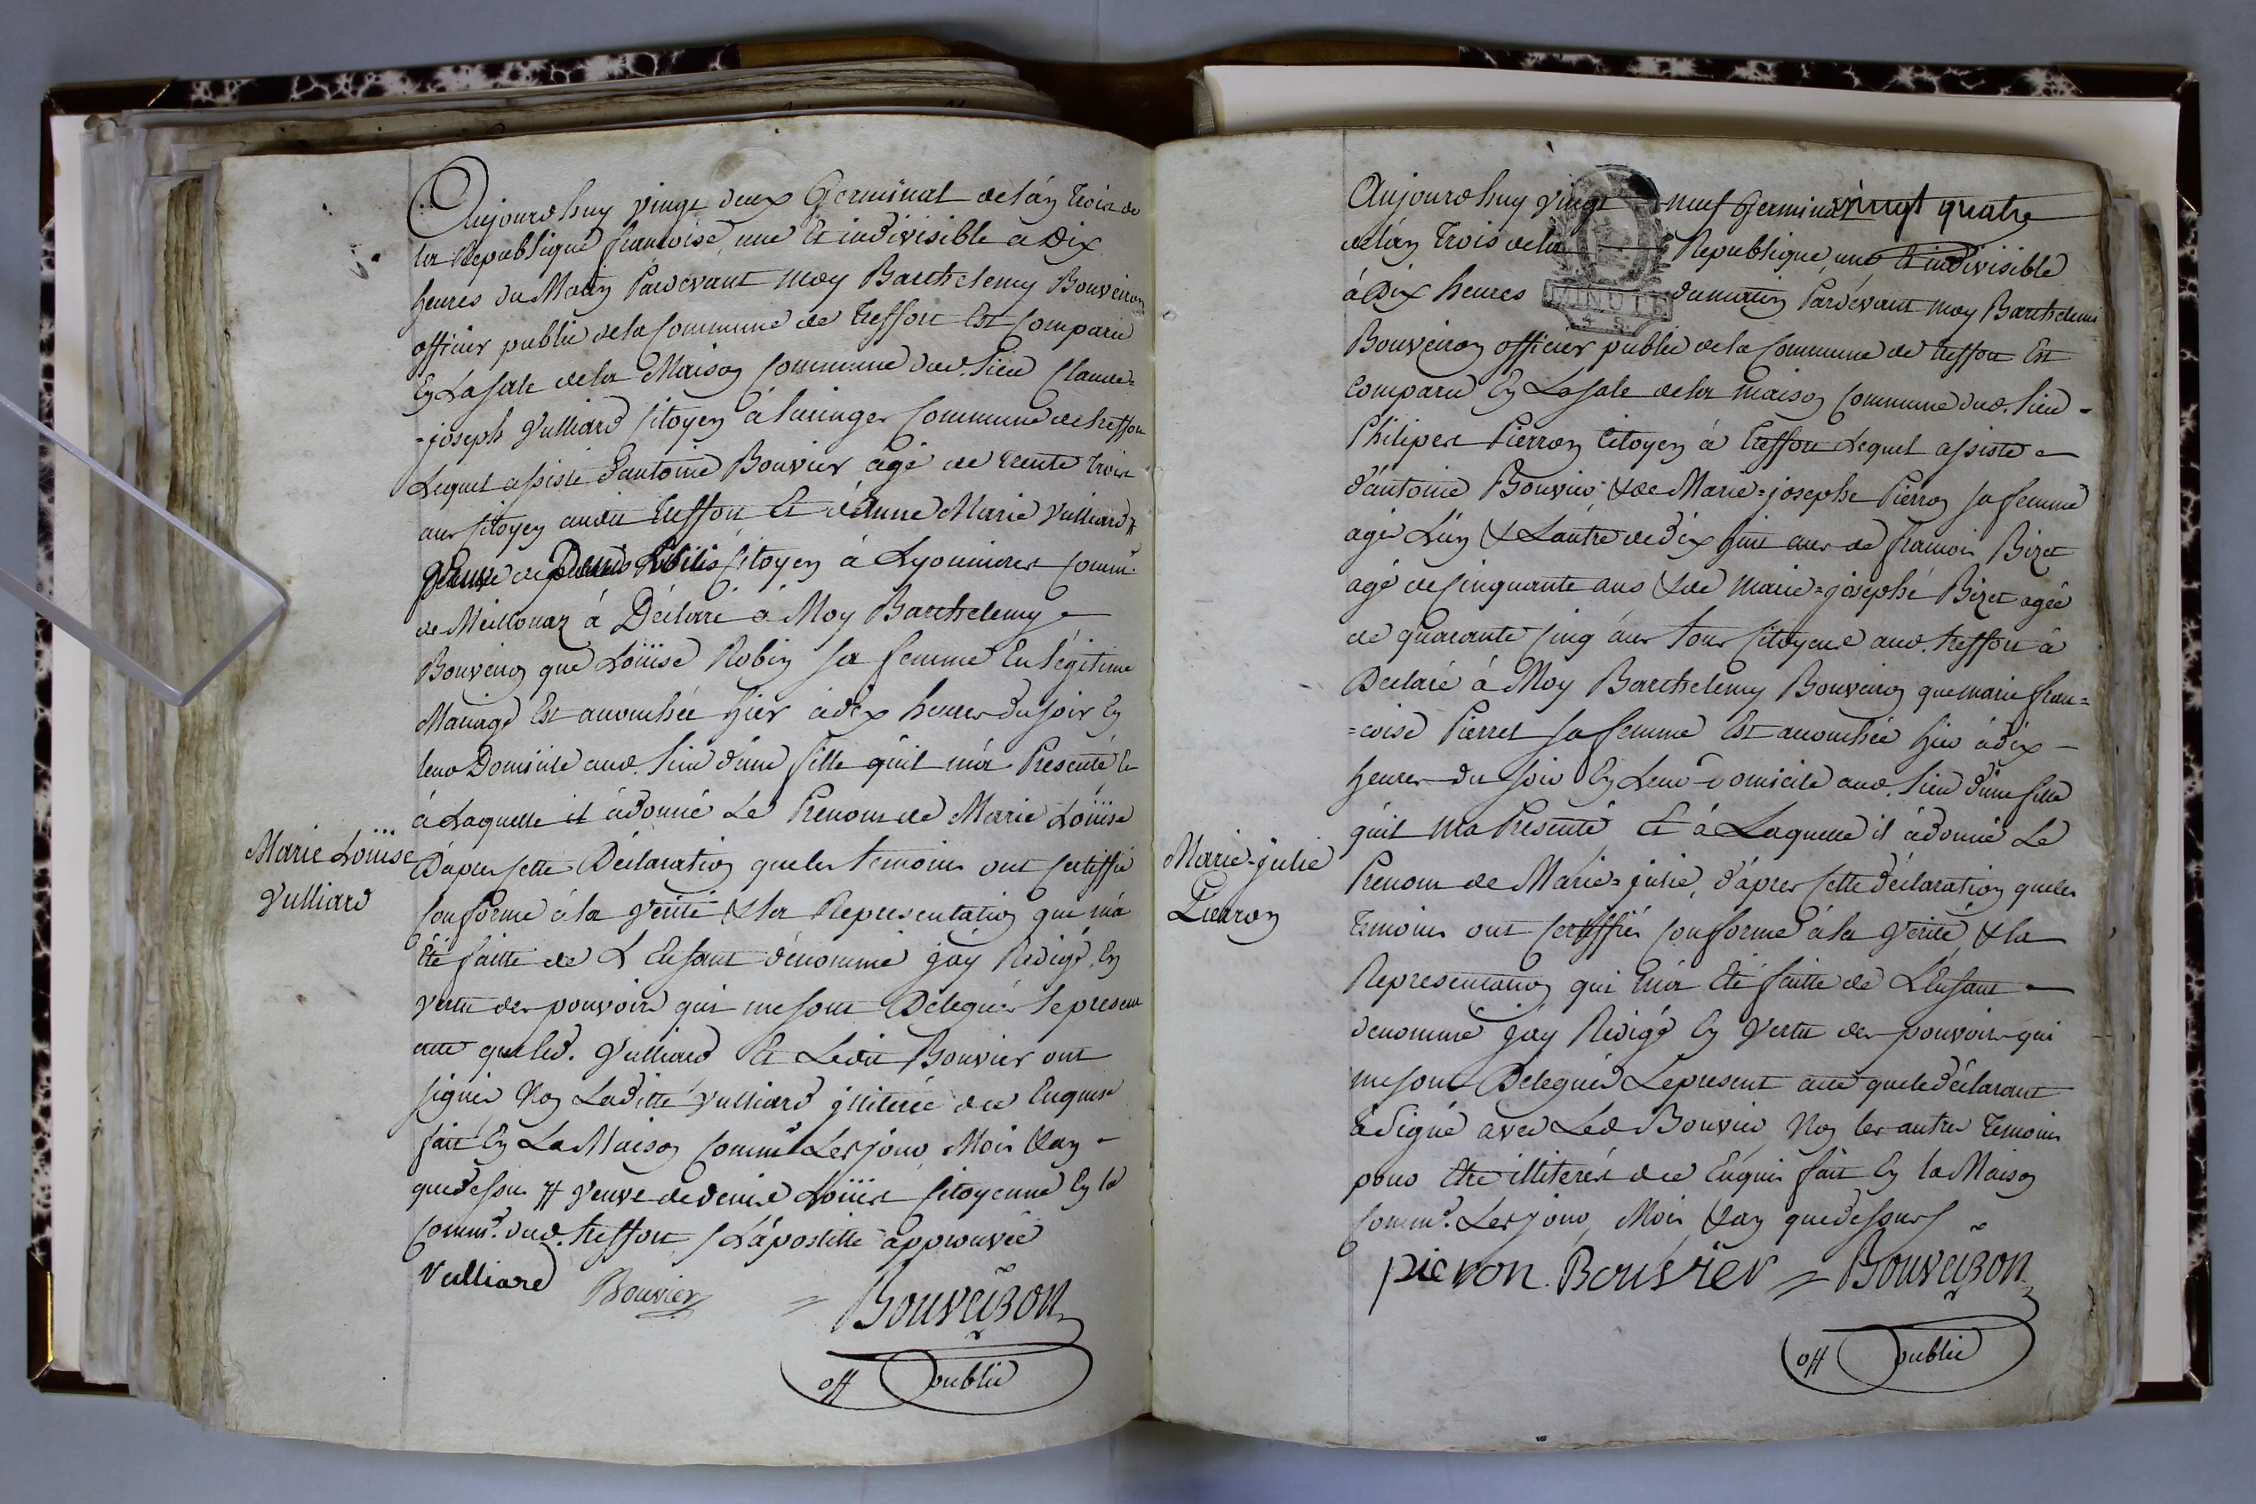 Aujourdhuy vingt deux Germinal de lán trois de
la Republique francoise, une Et indivisible a dix
heures du Matin Pardevant moy Barthelemy Bouveiron
officier public dela Commune de treffort Est Comparu
En La sale dela Maison Commune dud. lieu Claude=
=joseph Vulliard Citoyen á Commune de treffort
Lequel assisté dantoine Bouvier agé de trente trois
ans Citoyen audit treffort Et dánne Marie Vulliard #
Citoyen á Lyonnieres Comm.e
de Meillonaz á Déclaré á Moy Barthelemy
Bouveiron que Loüise Robin sa femme En légitime
Mariage Est accouchée hier à dix heures du soir En
leur Domicile aud. lieu dúne fille quil má Presenté Et
á Laquelle il ádonné Le Prenom de Marie Loüise
D'apres cette Déclaration que les temoins ont certiffié
Conforme á la verité & la Representation qui má
Eté faitte de L Enfant dénommé jáy Redigé En
vertu des pouvoirs qui me sont Delegués le present
acte que led. Vulliard Et Ledit Bouvier ont
signés Non Laditte Vulliard illiterée dce Enquise
fait En La Maison Comm.e Les jour Mois &an
que dessus # veuve de denis Loüis Citoyenne En la
Comm.e dud. treffort / L'ápostille approuvée
Vulliard Bouvier = Bouveiron
off public
Marie Loüise
Vulliard
Aujourdhuy vingt neuf Germinal vingt quatre
delán trois dela Republique, une Et indivisible
MINUTE
á Dix heures dumatin Pardevant moy Barthelemi
Bouveiron officier public dela Commune de treffort Est
Comparu En La sale dela maison Commune dud. lieu =
Philipes Pierron Citoyen á treffort Lequel assisté
d'antoine Bouvier & de Marie=josephe Pierron sa femme
agés Lún & Lautre de dix huit ans de francois Bizet
agé de Cinquante ans & de Marie=josephé Bizet agée
de quarante Cinq ans tous Citoyens aud. treffort á
Declaré á Moy Barthelemy Bouveiron que marie fran=
=coise Pierret sa femme Est accouchée hier ádix
heures du soir En Leur domicile aud. lieu dúne fille
quil ma Presenté Et á Laquelle il ádonné Le
Prenom de Marie=julie, d'ápres cette déclaration que les
temoins ont Certiffiés Conforme á la verité & la
Representation qui má Eté faitte de L'Enfant
denommé jáy Redigé En vertu des pouvoirs qui
me sont Delegués Le present acte que le déclarant
á Signé avec Led Bouvier Non les autres temoins
pour Etre illiterés dce Enquis fait En la Maison
Comm.e Les jour, Mois &an que dessus /
pieron. Bouvier = Bouveiron
off public
Marie=julie
Pierron